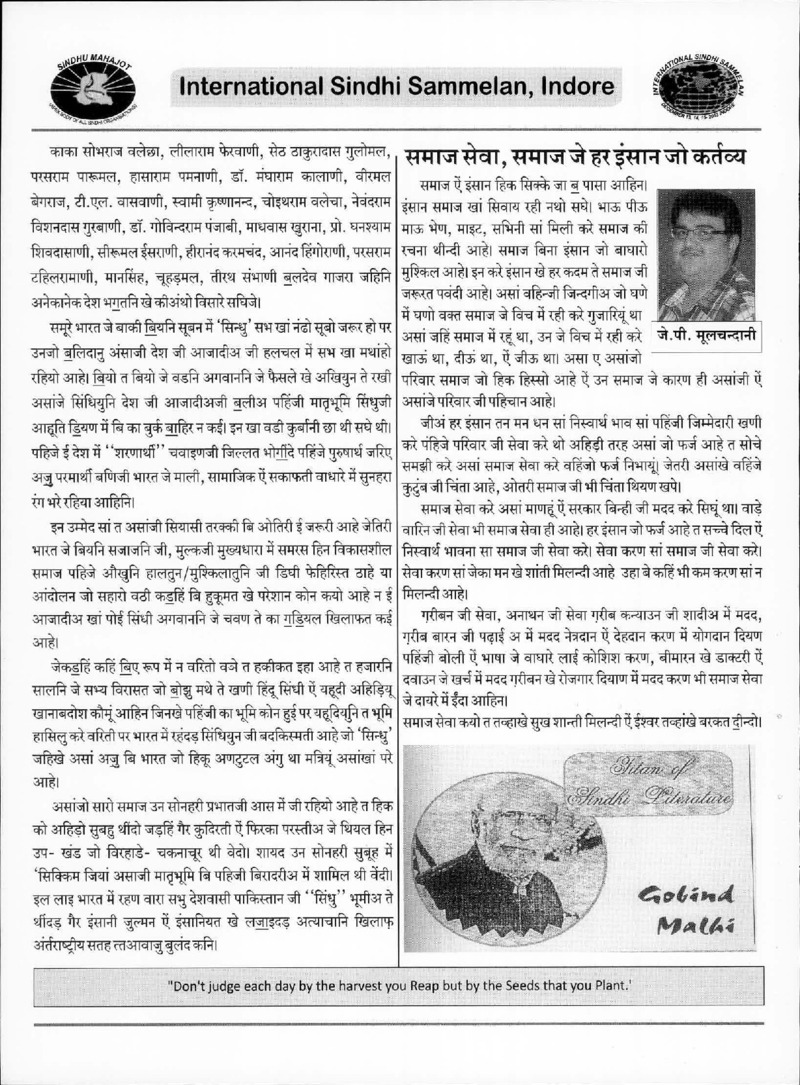 SINDHU MAHAJOT
INTERNATIONAL SINDHI SAMMELAN
International Sindhi Sammelan, Indore
काका सोभराज वलेछा, लीलाराम फेरवाणी, सेठ ठाकुरादास गुलोमल,
परसराम पारूमल, हासाराम पमनाणी, डॉ. मंघाराम कालाणी, वीरमल
बेगराज, टी.एल. वासवाणी, स्वामी कृष्णानन्द, चोइथराम वलेचा, नेवंदराम
विशनदास गुरबाणी, डॉ. गोविन्दराम पंजाबी, माधवास खुराना, प्रो. घनश्याम
शिवदासाणी, सीरूमल ईसराणी, हीरानंद करमचंद, आनंद हिंगोराणी, परसराम
टहिलरामाणी, मानसिंह, चूहड़मल, तीरथ संभाणी ब॒लदेव गाजरा जहिनि
अनेकानेक देश भग॒तनि खे कीअंथो विसारे सघिजे।
समूरे भारत जे बाकी बि॒यनि सूबन में 'सिन्धु' सभ खां नंढो सूबो जरूर हो पर
उनजो ब॒लिदानु अंसाजी देश जी आजादीअ जी हलचल में सभ खा मथांहो
रहियो आहे। बि॒यो त बियो जे वडनि अगवाननि जे फैसले खे अखियुन ते रखी
असांजे सिंधियुनि देश जी आजादीअजी ब॒लीअ पहिंजी मातृभूमि सिंधुजी
आहूति डि॒यण में बि का चुर्क बा॒हिर न कई। इन खा वडी कुर्बानी छा थी सघे थी।
पहिजे ई देश में "शरणार्थी" चवाइणजी जिल्लत भोगीं॒दे पहिंजे पुरुषार्थ जरिए
अजु॒ परमार्थी बणिजी भारत जे माली, सामाजिक ऐं सकाफती वाधारे में सुनहरा
रंग भरे रहिया आहिनि।
इन उम्मेद सां त असांजी सियासी तरक्की बि ओतिरी ई जरूरी आहे जेतिरी
भारत जे बियनि सजाजनि जी, मुल्कजी मुख्यधारा में समरस हिन विकासशील
समाज पहिजे औखुनि हालतुन/मुश्किलातुनि जी डिघी फेहिरिस्त ठाहे या
आंदोलन जो सहारो वठी कड॒हिं बि हुकूमत खे परेशान कोन कयो आहे न ई
आजादीअ खां पोई सिंधी अगवाननि जे चवण ते का गडि॒यल खिलाफत कई
आहे।
जेकड॒हिं कहिं बि॒ए रूप में न वरितो वञे त हकीकत इहा आहे त हजारनि
सालनि जे सभ्य विरासत जो बो॒झु मथे ते खणी हिंदू सिंधी ऐं यहूदी अहिड़ियू
खानाबदोश कौमूं आहिन जिनखे पहिंजी का भूमि कोन हुई पर यहूदियुनि त भूमि
हासिलु करे वरिती पर भारत में रहंदड़ सिंधियुन जी बदकिस्मती आहे जो 'सिन्धु'
जहिखे असां अजु॒ बि भारत जो हिकू अणटुटल अंगु था मत्रियूं असांखां परे
आहे।
असांजो सारो समाज उन सोनहरी प्रभातजी आस में जी रहियो आहे त हिक
को अहिड़ो सुबहु थींदो जड़हिं गैर कुदिरती ऐं फिरका परस्तीअ जे थियल हिन
उप- खंड जो विरहाडे- चकनाचूर थी वेदो। शायद उन सोनहरी सुबूह में
'सिक्किम जियां असाजी मातृभूमि बि पहिजी बिरादरीअ में शामिल थी वेंदी।
इल लाइ भारत में रहण वारा सभु देशवासी पाकिस्तान जी ''सिंधु'' भूमीअ ते
थींदड़ गैर इंसानी जुल्मन ऐं इंसानियत खे लजा॒इदड़ अत्याचानि खिलाफ़
अंर्तराष्ट्रीय सतह त्तआवाजु बुलंद कनि।
समाज सेवा, समाज जे हर इंसान जो कर्तव्य
समाज ऐं इंसान हिक सिक्के जा ब॒ पासा आहिन।
इंसान समाज खां सिवाय रही नथो सघे। भाऊ पीऊ
माऊ भेण, माइट, सभिनी सां मिली करे समाज की
रचना थीन्दी आहे। समाज बिना इंसान जो बाघारो
मुश्किल आहे। इन करे इंसान खे हर कदम ते समाज जी
जरूरत पवंदी आहे। असां वहिन्जी जिन्दगीअ जो घणे
में घणो वक्त समाज जे विच में रही करे गुजारियूं था
असां जहिं समाज में रहूं था, उन जे विच में रही करे
खाऊं था, दीऊं था, ऐं जीऊ था। असा ए असांजो
परिवार समाज जो हिक हिस्सो आहे ऐं उन समाज जे कारण ही असांजी ऐं
असांजे परिवार जी पहिचान आहे।
जे.पी. मूलचन्दानी
जीअं हर इंसान तन मन धन सां निस्वार्थ भाव सां पहिंजी जिम्मेदारी खणी
करे पंहिजे परिवार जी सेवा करे थो अहिड़ी तरह असां जो फर्ज आहे त सोचे
समझी करे असां समाज सेवा करे वहिंजो फर्ज निभायूं। जेतरी असांखे वहिंजे
कुटुंब जी चिंता आहे, ओतरी समाज जी भी चिंता थियण खपे।
समाज सेवा करे असां माणहूं ऐं सरकार बिन्ही जी मदद करे सिघूं था। वाड़े
वारिन जी सेवा भी समाज सेवा ही आहे। हर इंसान जो फर्ज आहे त सच्चे दिल ऐं
निस्वार्थ भावना सा समाज जी सेवा करे। सेवा करण सां समाज जी सेवा करे।
सेवा करण सां जेका मन खे शांती मिलन्दी आहे उहा बे कहिं भी कम करण सां न
मिलन्दी आहे।
ग॒रीबन जी सेवा, अनाथन जी सेवा ग॒रीब कन्याउन जी शादीअ में मदद,
ग॒रीब बारन जी पढ़ाई अ में मदद नेत्रदान ऐं देहदान करण में योगदान दियण
पहिंजी बोली ऐं भाषा जे वाघारे लाई कोशिश करण, बीमारन खे डाक्टरी ऐं
दवाउन जे खर्च में मदद ग॒रीबन खे रोजगार दियाण में मदद करण भी समाज सेवा
जे दायरे में ईंदा आहिन।
समाज सेवा कयो त तव्हाखे सुख शान्ती मिलन्दी ऐं ईश्वर तव्हांखे बरकत दी॒न्दो।
Titan of
Sindhi Literature
Gobind
Malhi
"Don't judge each day by the harvest you Reap but by the Seeds that you Plant.'